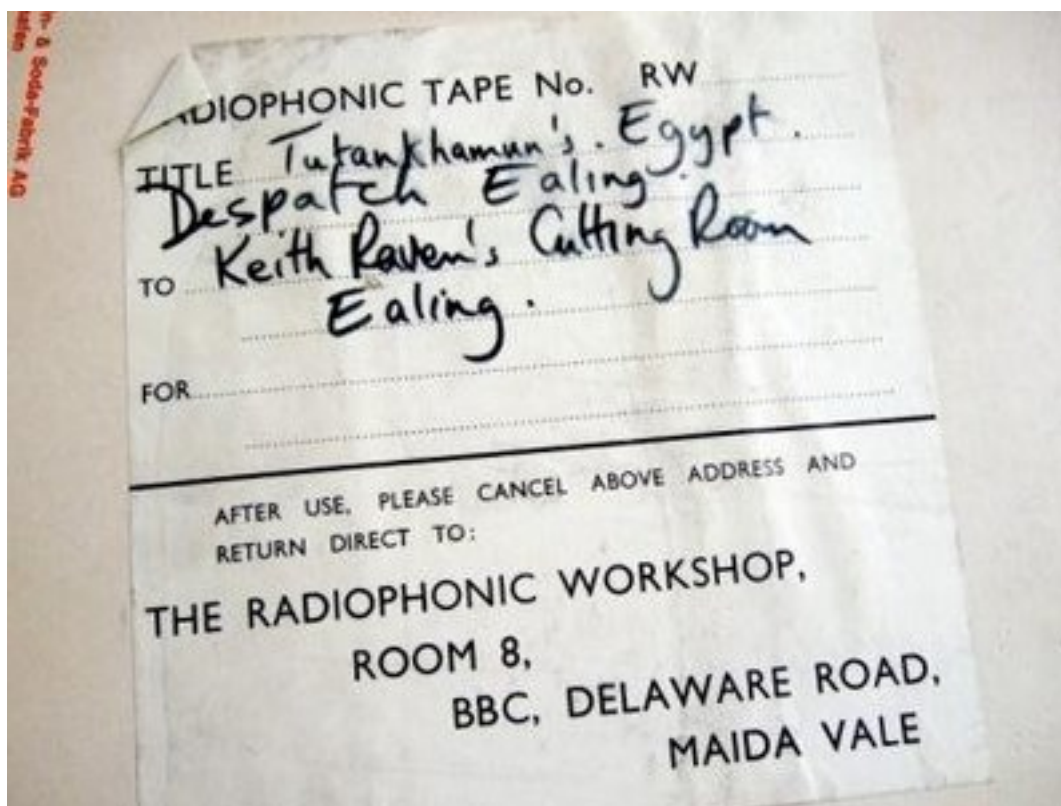 n- & Soda-Fabrik AG
afen
DIOPHONIC TAPE No. RW
TITLE Tutankhamun's. Egypt.
Despatch Ealing.
TO Keith Raven's Cutting Room
Ealing.
FOR
AFTER USE, PLEASE CANCEL ABOVE ADDRESS AND
RETURN DIRECT TO:
THE RADIOPHONIC WORKSHOP,
ROOM 8,
BBC, DELAWARE ROAD,
MAIDA VALE